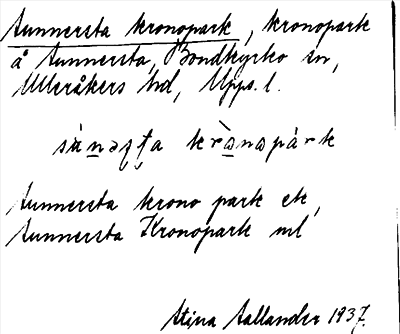 Sunnersta kronopark, kronopark
å Sunnersta, Bondkyrko sn,
Ulleråkers hd, Upps. l.
Sunnersta krono park ek,
Sunnersta Kronopark ml
Stina Sallander 1937.